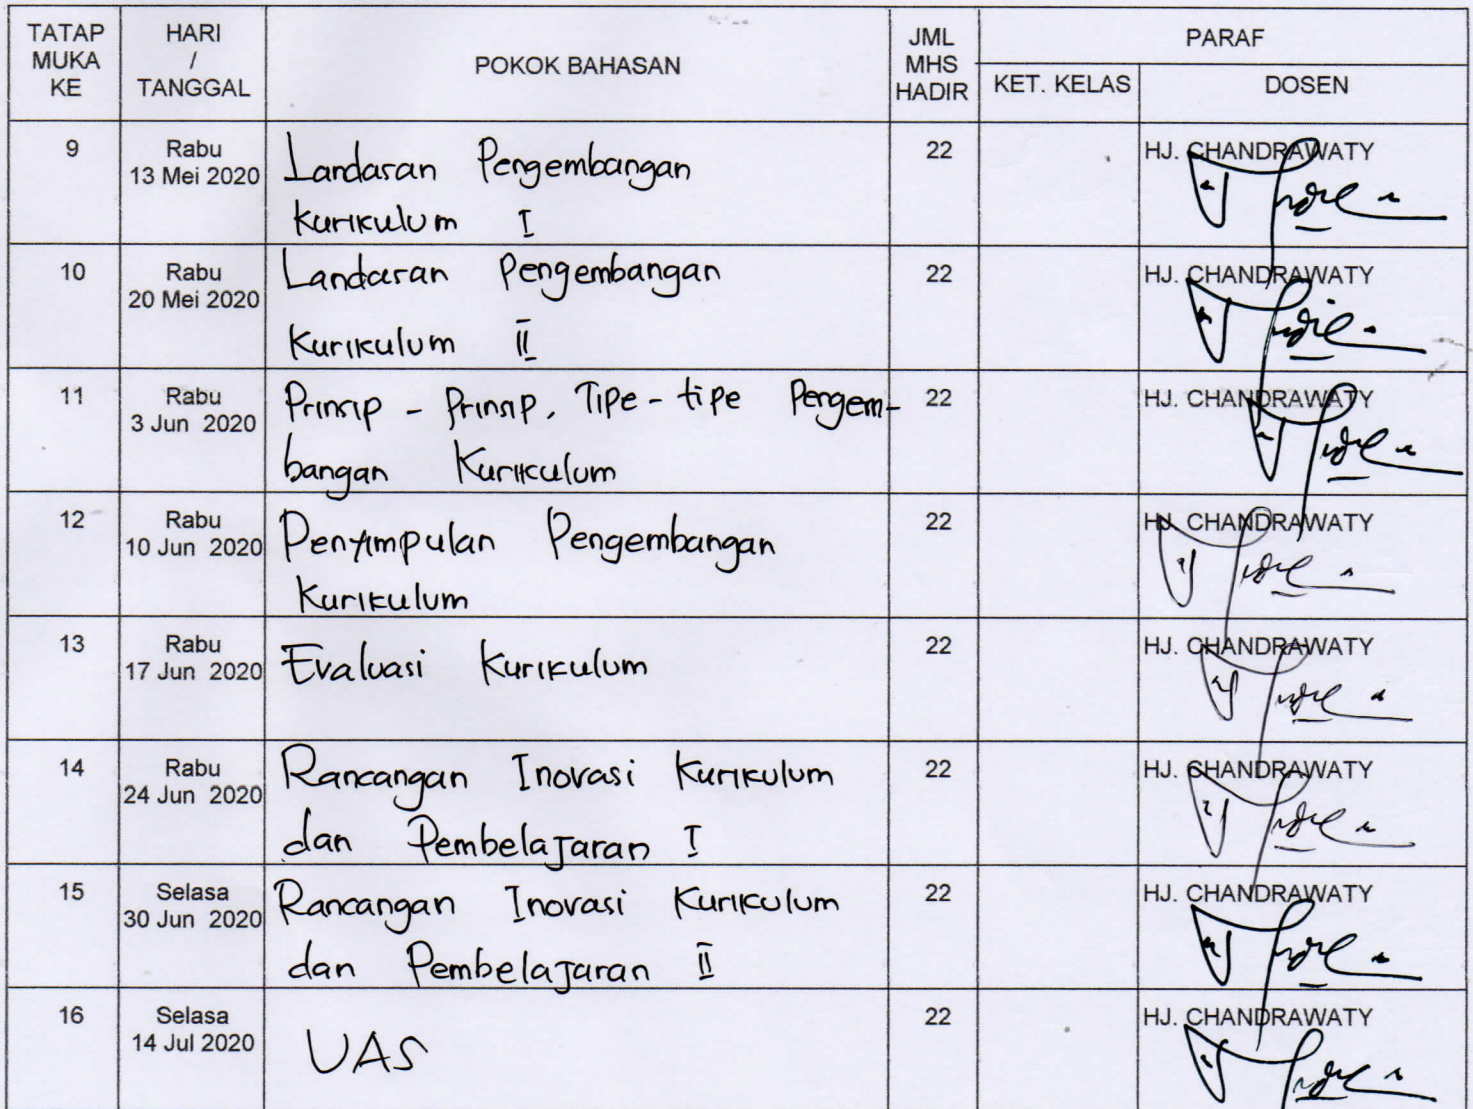 TATAP
MUKA
KE
HARI
/
TANGGAL
POKOK BAHASAN
JML
MHS
HADIR
PARAF
KET. KELAS
DOSEN
9
Rabu
13 Mei 2020
Landasan Pengembangan
Kurikulum I
22
HJ. CHANDRAWATY
10
Rabu
20 Mei 2020
Landasan Pengembangan
Kurikulum II
22
HJ. CHANDRAWATY
11
Rabu
3 Jun 2020
Prinsip - Prinsip, Tipe - tipe Pengem-
bangan Kurikulum
22
HJ. CHANDRAWATY
12
Rabu
10 Jun 2020
Penyimpulan Pengembangan
Kurikulum
22
HJ. CHANDRAWATY
13
Rabu
17 Jun 2020
Evaluasi Kurikulum
22
HJ. CHANDRAWATY
14
Rabu
24 Jun 2020
Rancangan Inovasi Kurikulum
dan Pembelajaran I
22
HJ. CHANDRAWATY
15
Selasa
30 Jun 2020
Rancangan Inovasi Kurikulum
dan Pembelajaran II
22
HJ. CHANDRAWATY
16
Selasa
14 Jul 2020
UAS
22
HJ. CHANDRAWATY